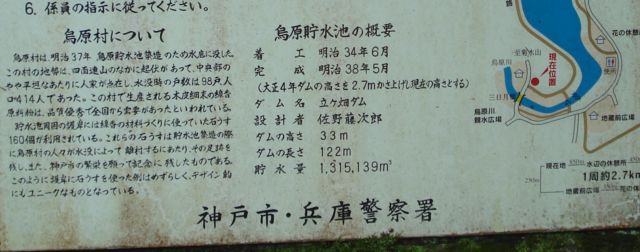 6. 係員の指示に従ってください。
烏原村について
烏原村は、明治37年 烏原貯水池築造のため水底に没した
この村の地勢は、四面連山のなかに起伏があって、中央部の
やや平坦なあたりに人家が点在し、水没時の戸数は98戸人
口414人であった。この村で生産される木皮細末の線香
原料粉は、品質優秀で全国から需要があったといわれている。
貯水池周囲の護岸には線香の材料づくりに使っていた石うす
160個が利用されている。これらの石うすは貯水池築造の際
に烏原村の人々が水没によって離村するにあたり、その足跡を
残し、また、神戸市の繁栄を願って記念に残したものである。
このように護岸に石うすを使った例はめずらしく、デザイン的
にもユニークなものとなっている。
烏原貯水池の概要
着工 明治34年6月
完成 明治38年5月
(大正4年ダムの高さを2.7mかさ上げし現在の高さとする)
ダム名 立ヶ畑ダム
設計者 佐野藤次郎
ダムの高さ 33m
ダムの長さ 122m
貯水量 1,315,139m³
神戸市・兵庫警察署
至菊水山
烏原川
現在位置
三日月橋
烏原川
親水広場
花の休憩所
便所
地蔵前広場
現在地
水辺の休憩所
1周約2.7km
地蔵前広場
花の休